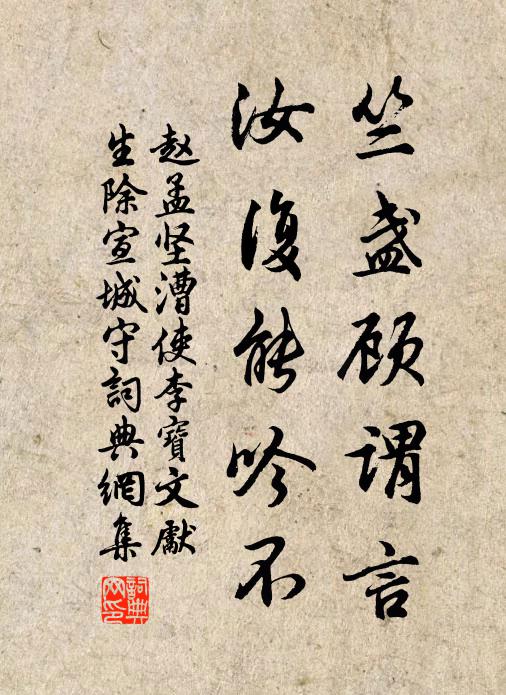 竺盏顾谓言
汝復能吟不
赵孟坚漕使李寶文獻
生除宣城守詞典網集
詞典文印